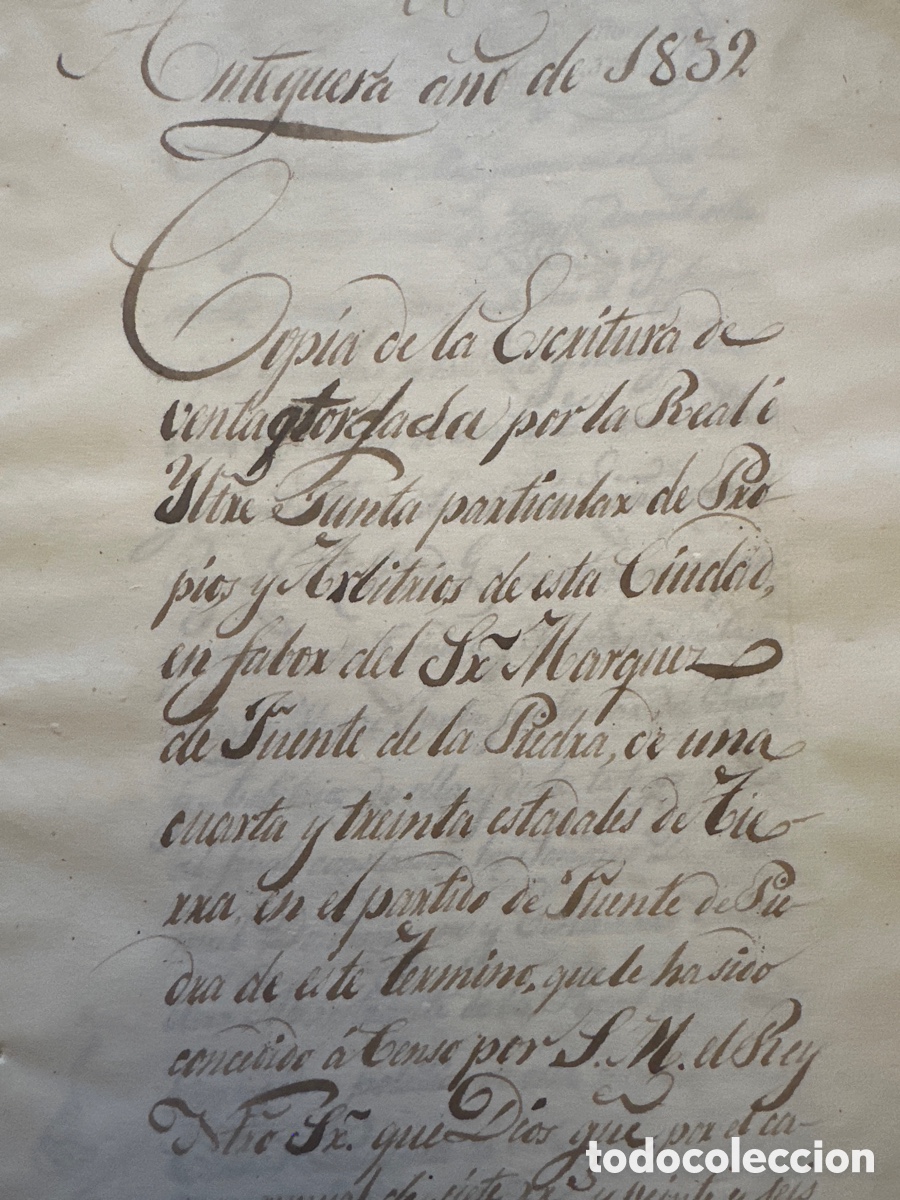 Antequera año de 1832
Copia de la Escritura de
venta otorgada por la Real é
Yltre Junta particular de Pro-
pios y Arbitrios de esta Ciudad,
en fabor del Sr. Marquez
de Fuente de la Piedra, de una
cuarta y treinta estadales de Tie-
rra, en el partido de Fuente de Pie-
dra de este termino, que le ha sido
concedido á Censo por S. M. el Rey
Ntro Sr. que Dios gue. por el ca-
de siete rs. y veinte y seis
todocoleccion